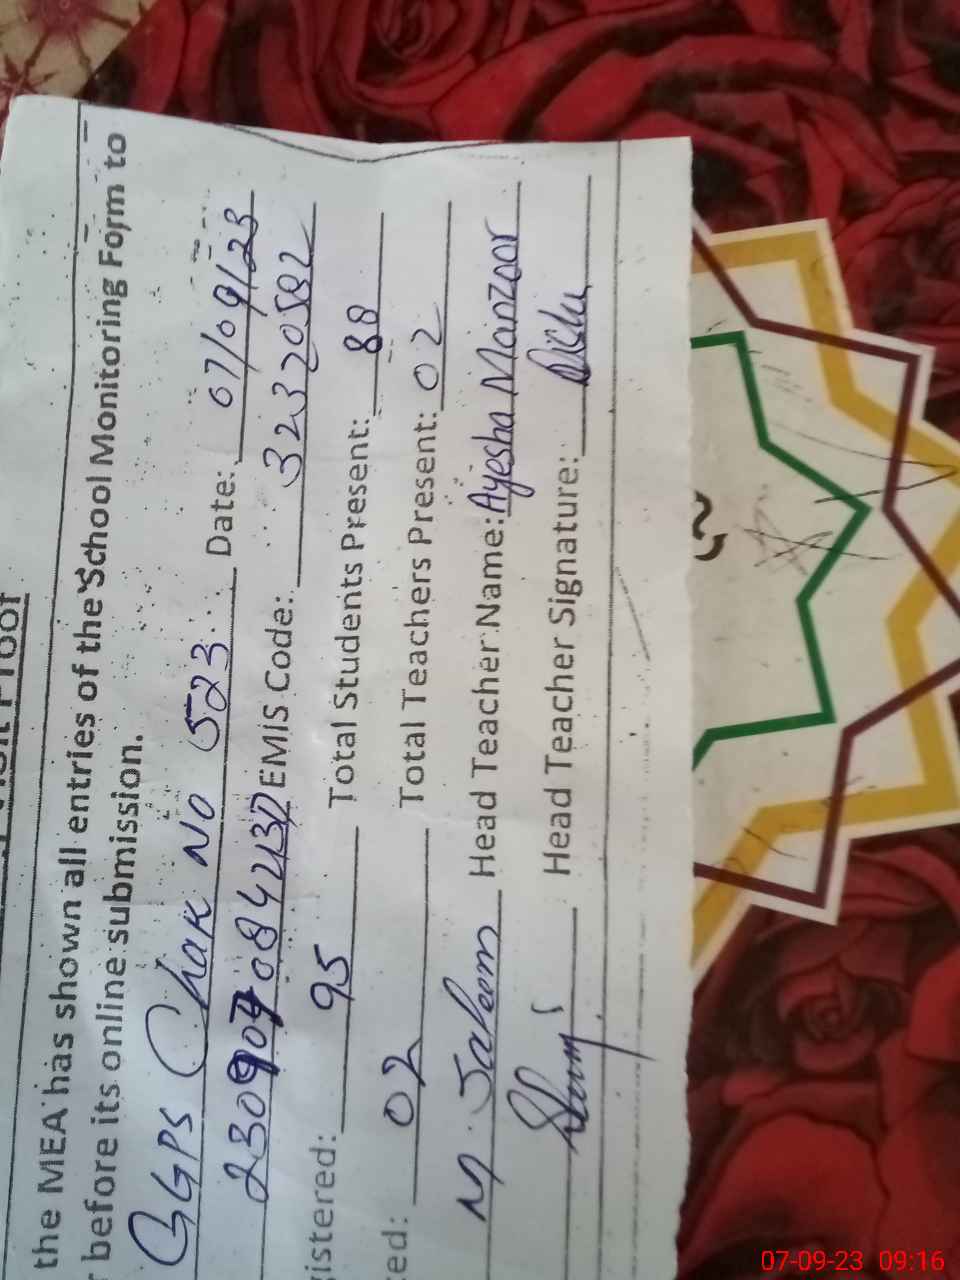 the MEA has shown all entries of the School Monitoring Form to
before its online submission.
GGPS Chak No 523 Date: 07/09/23
EMIS Code: 32320582
gistered: 95 Total Students Present: 88
ted: 02 Total Teachers Present: 02
M. Saleem Head Teacher Name: Ayesha Manzoor
Head Teacher Signature:
07-09-23 09:16